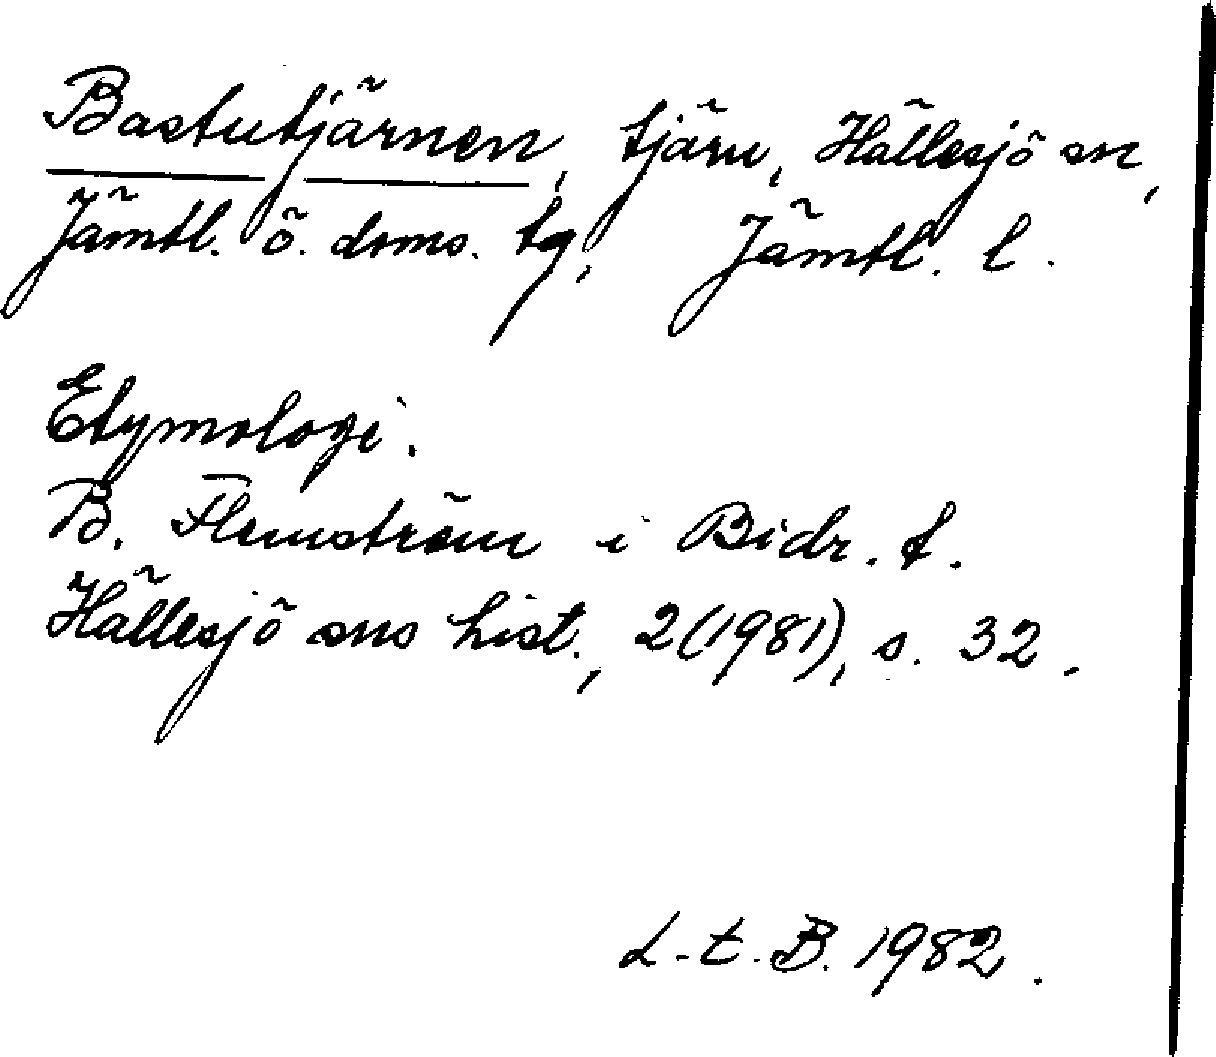 Bastutjärnen, tjärn, Hällesjö sn,
Jämtl. ö. doms. tg, Jämtl. l.
Etymologi.
B. Flemström i Bidr. t.
Hällesjö sns hist., 2(1981), s. 32.
L.-E. B. 1982.